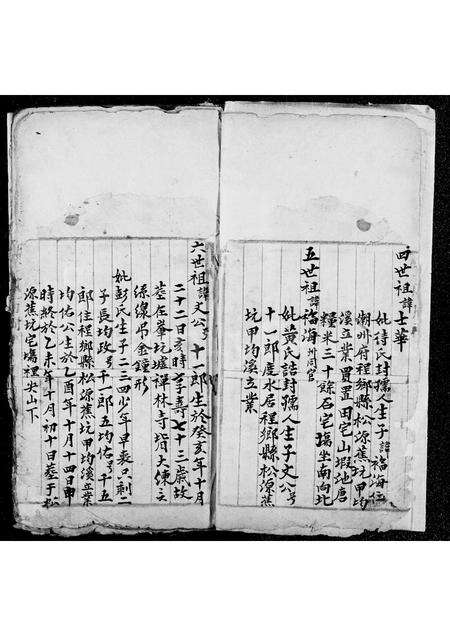 四世祖諱士華
妣待氏封孺人生子諱福海住
潮州府程鄉縣松源蕉坑甲均
溪立業買置田宅山塅地唐
糧米三十餘石宅塲坐南向北
五世祖諱福海州同官
妣黃氏誥封孺人生子文公号
十一郎廣水居程鄉縣松源蕉
坑甲均溪立業
六世祖諱文公号十一郎生於癸亥年十月
二十二日亥時享壽七十三歲故
墓在蕉坑墟禪林寺背大陳
絲線吊金鐘形
妣彭氏生子二四少年早喪只剩二
子長均政号千一郎五均佑号千五
郎住程鄉縣松源蕉坑甲均溪立業
均佑公生於乙酉年十月十四日申
時終於乙未年十月初十日墓于松
源蕉坑宅塲裡尖山下